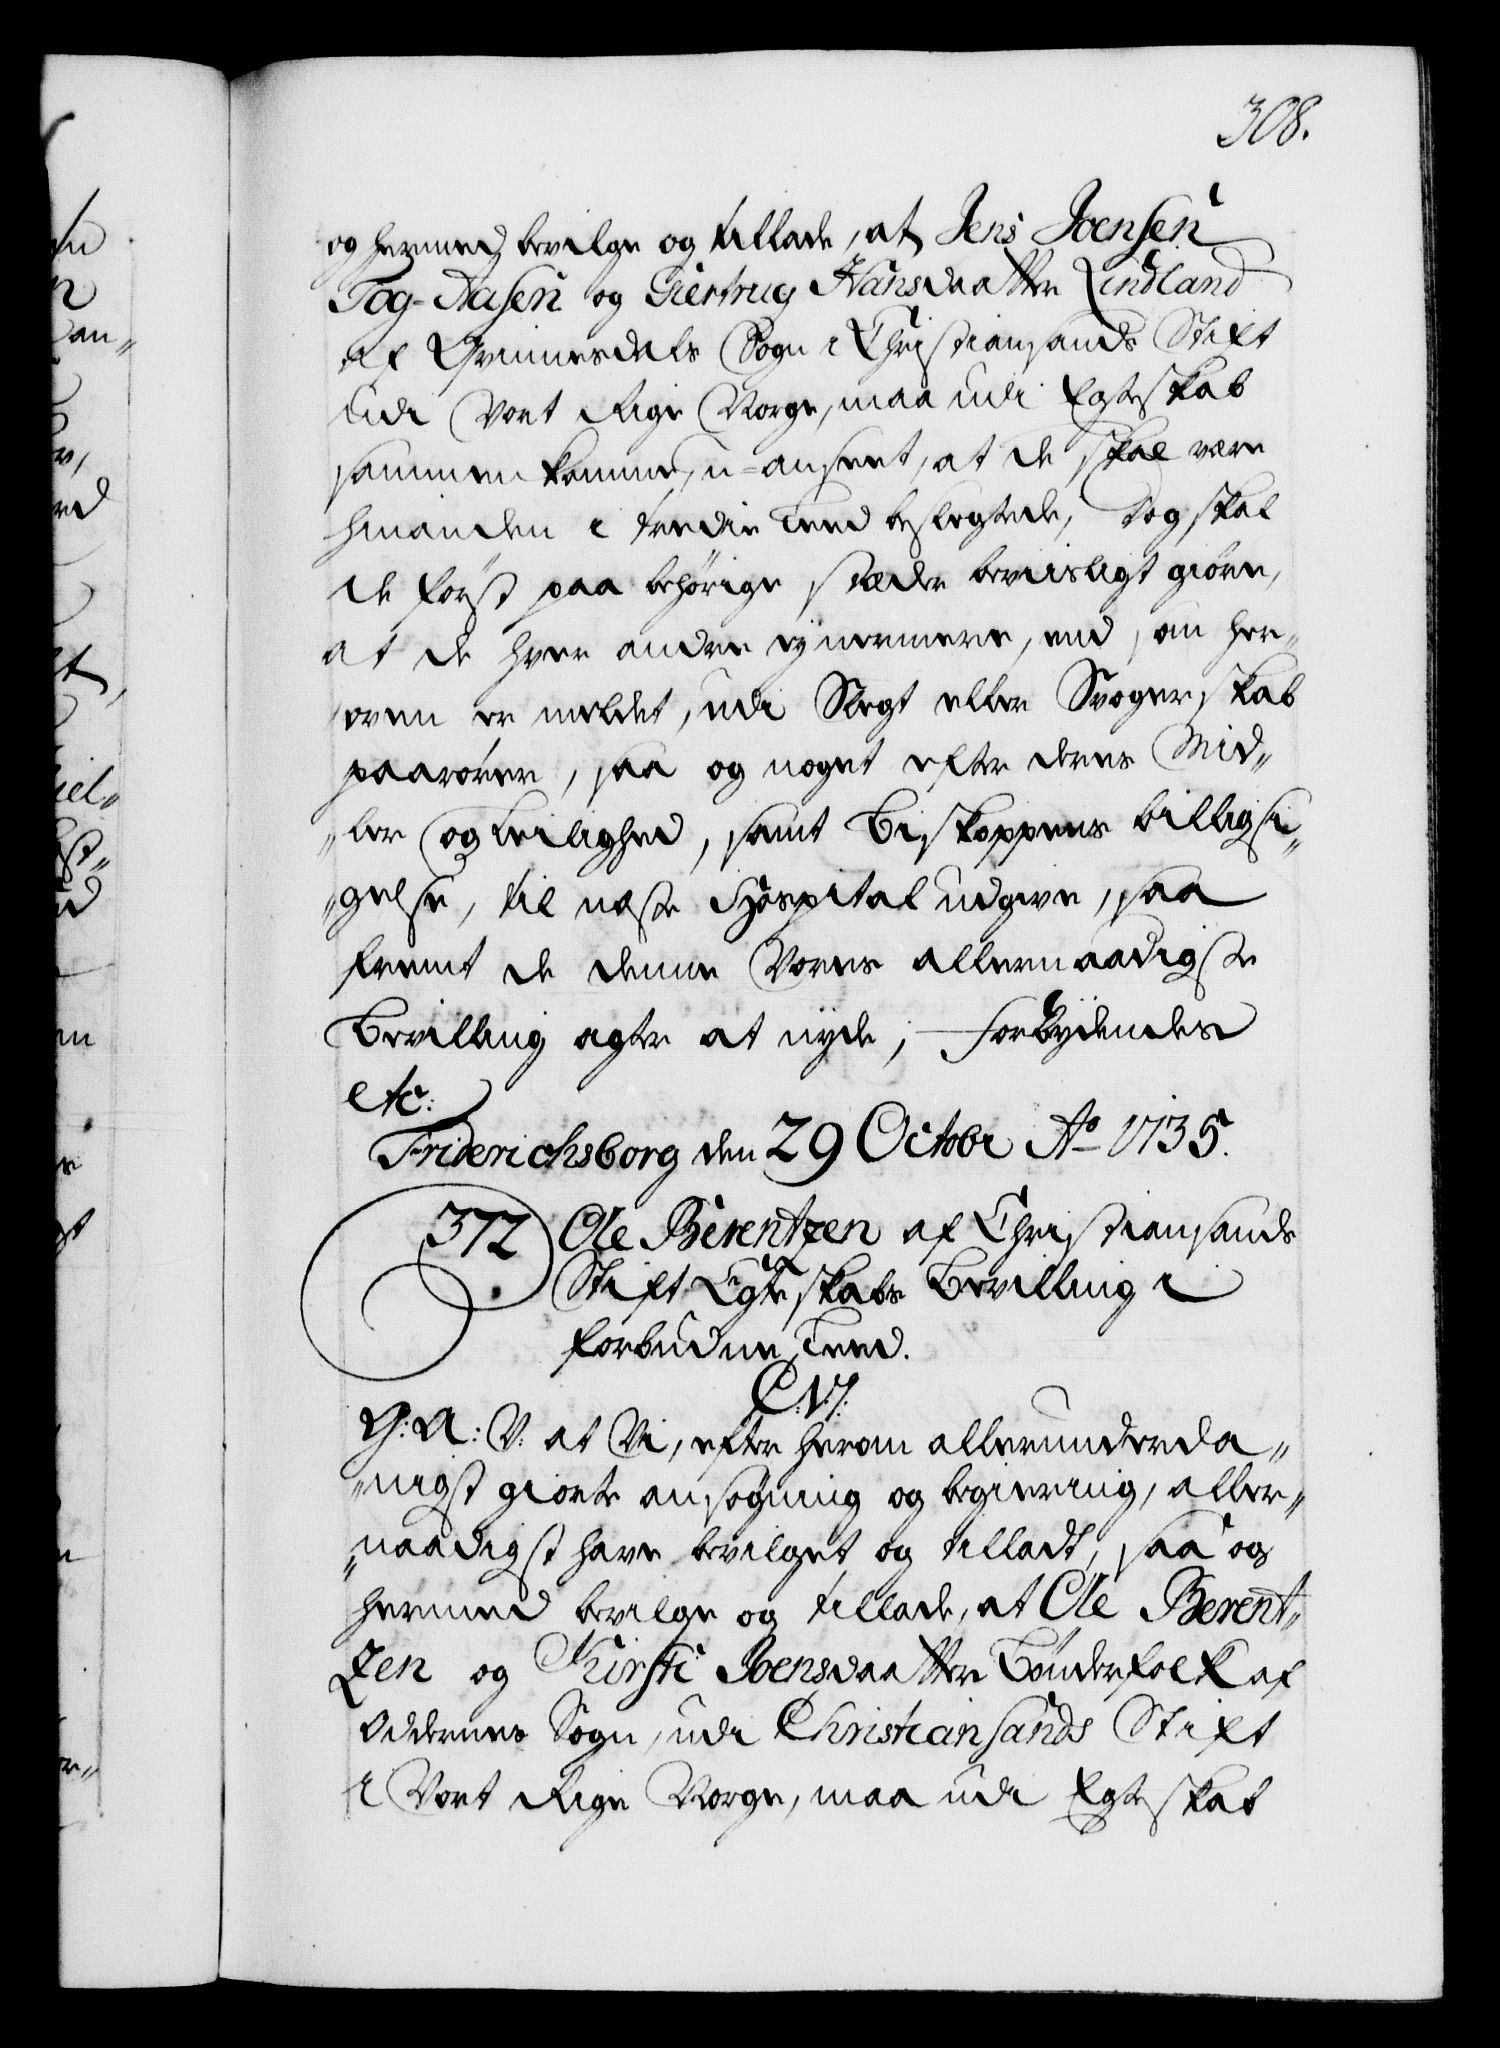 308.
og hermed bevilge og tillade, at Jens Joensen
Tog-Aasen og Giertrug Hansdaatter Lindland
af Qvinnesdals Sogn i Christiansands Stift
udi Vort Rige Norge, maa udi Egteskab
sammen komme, u-anseet, at de skal være
hinanden i tredie Leed beslegtede, dog skal
de først paa behørige stæder beviisligt giøre,
at de hver andre ej nermere, end som her„
oven er meldet, udi Slegt eller Svogerskab
paarører, saa og noget efter deres Mid„
„ler og Leilighed, samt Biskoppens billigsi„
„gelse, til næste Hospital udgive, saa
fremt de denne Vores allernaadigste
Bevilling agter at nyde; Forbydendes
etc:
Friderichsborg den 29 Octobr Ao 1735.
372. Ole Berentzen af Christiansands
Stift Egteskabs Bevilling i
forbudne Leed.
C.V.
G: A: V: at Vi, efter herom allerunderda„
„nigst giorte ansøgning og begiering, aller„
„naadigst have bevilget og tilladt, saa og
hermed bevilge og tillade, at Ole Berent„
zen og Kirsti Joensdaatter Bønderfolk af
Oddernes Sogn, udi Christiansands Stift
i Vort Rige Norge, maa udi Egteskab